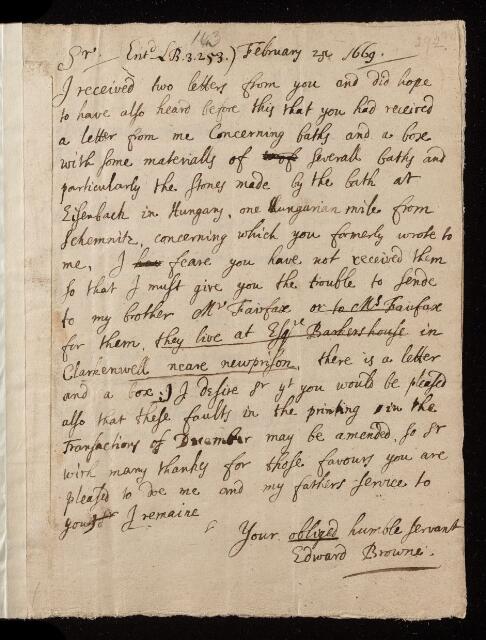 163
292
Sr. (Entd LB.3.253.) February 1669.
I received two letters from you and did hope
to have also heard before this that you had received
a letter from me Concerning baths and a box
with some materialls of of severall baths and
particularly the stones made by the bath at
Eisenbach in Hungary, one hungarian mile from
Schemnitz, concerning which you formerly wrote to
me, I feare you have not received them
so that I must give you the trouble to sende
to my brother Mr Fairfax or to Mrs Fairfax
for them, they live at Esqre Barkers house in
Clarkenwell neare newprison, there is a letter
and a box;) I desire Sr yt you would be pleased
also that these faults in the printing in the
Transactions of December may be amended, so Sr
with many thankes for those favours you are
pleased to doe me and my fathers service to
you I remaine
Your obliged humble servant
Edward Browne.